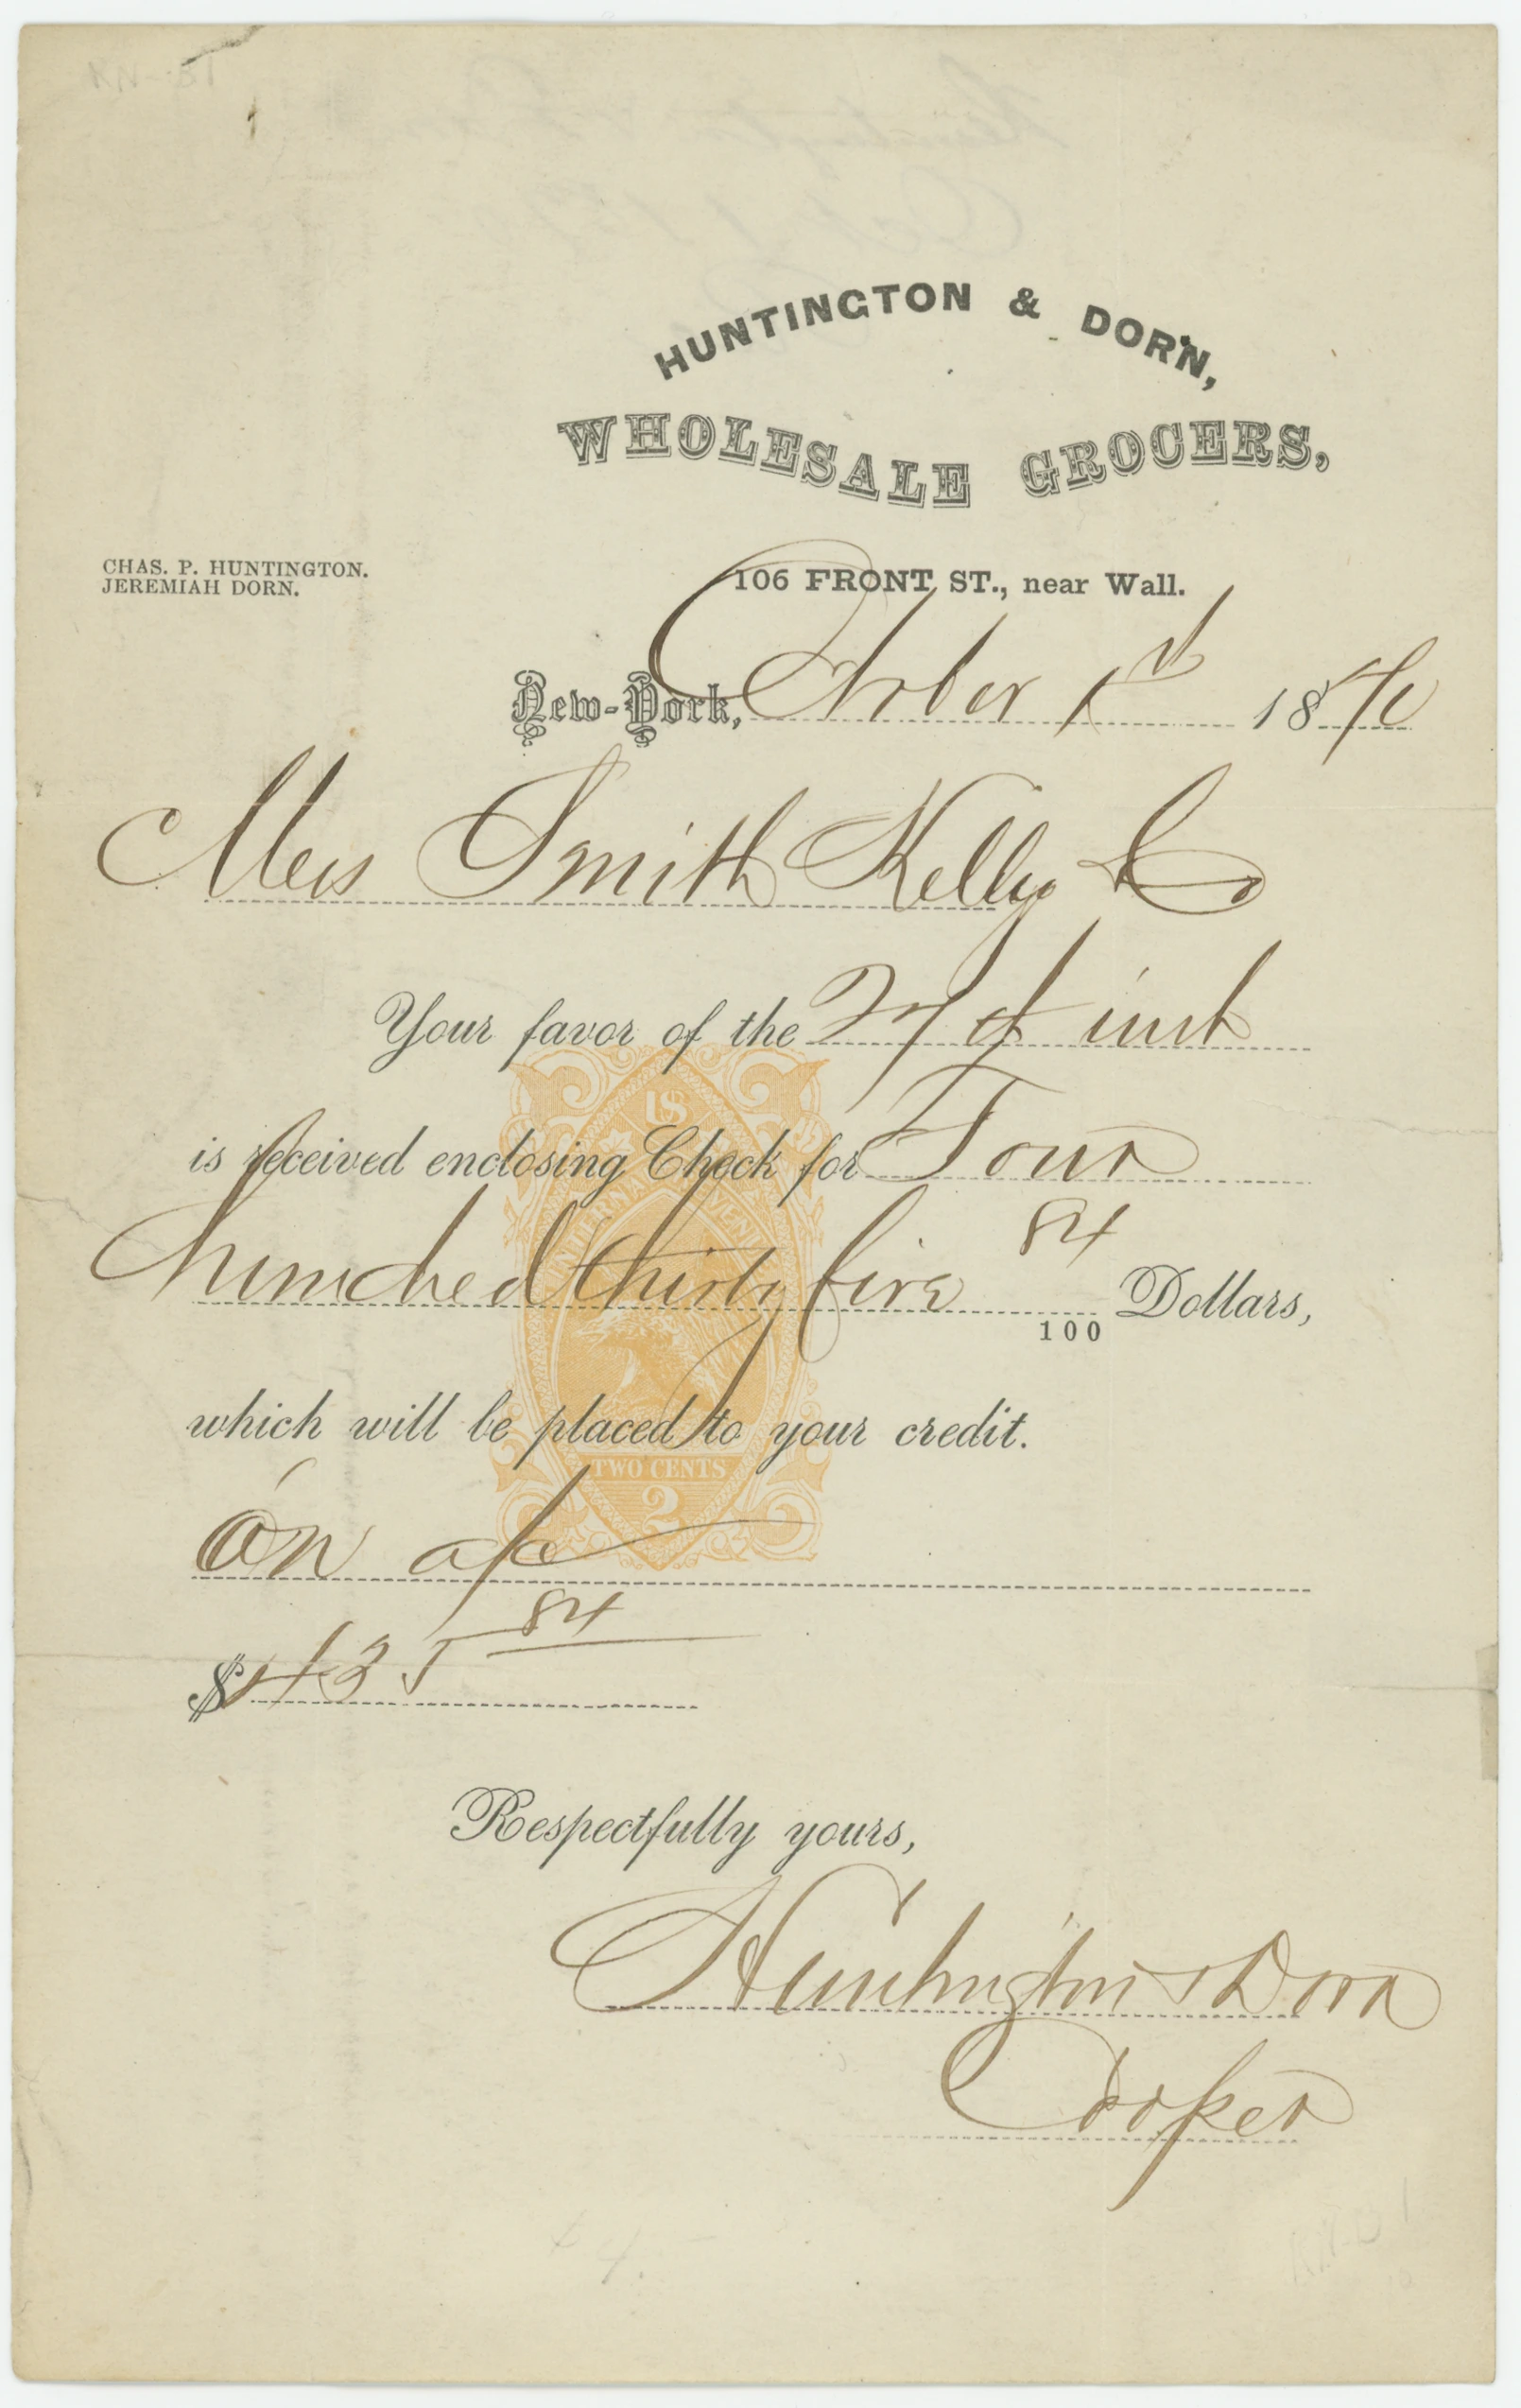 HUNTINGTON & DORN,
WHOLESALE GROCERS,
CHAS. P. HUNTINGTON.
JEREMIAH DORN.
106 FRONT ST., near Wall.
New-York, October 1st 18
Mess Smith Kelly & Co
Your favor of the inst
is received enclosing Check for Four
hundred thirty five 84/100 Dollars,
which will be placed to your credit.
On a/c
$435 84
Respectfully yours,
Huntington & Dorn
Cooper
US
INTERNAL REVENUE
TWO CENTS
2